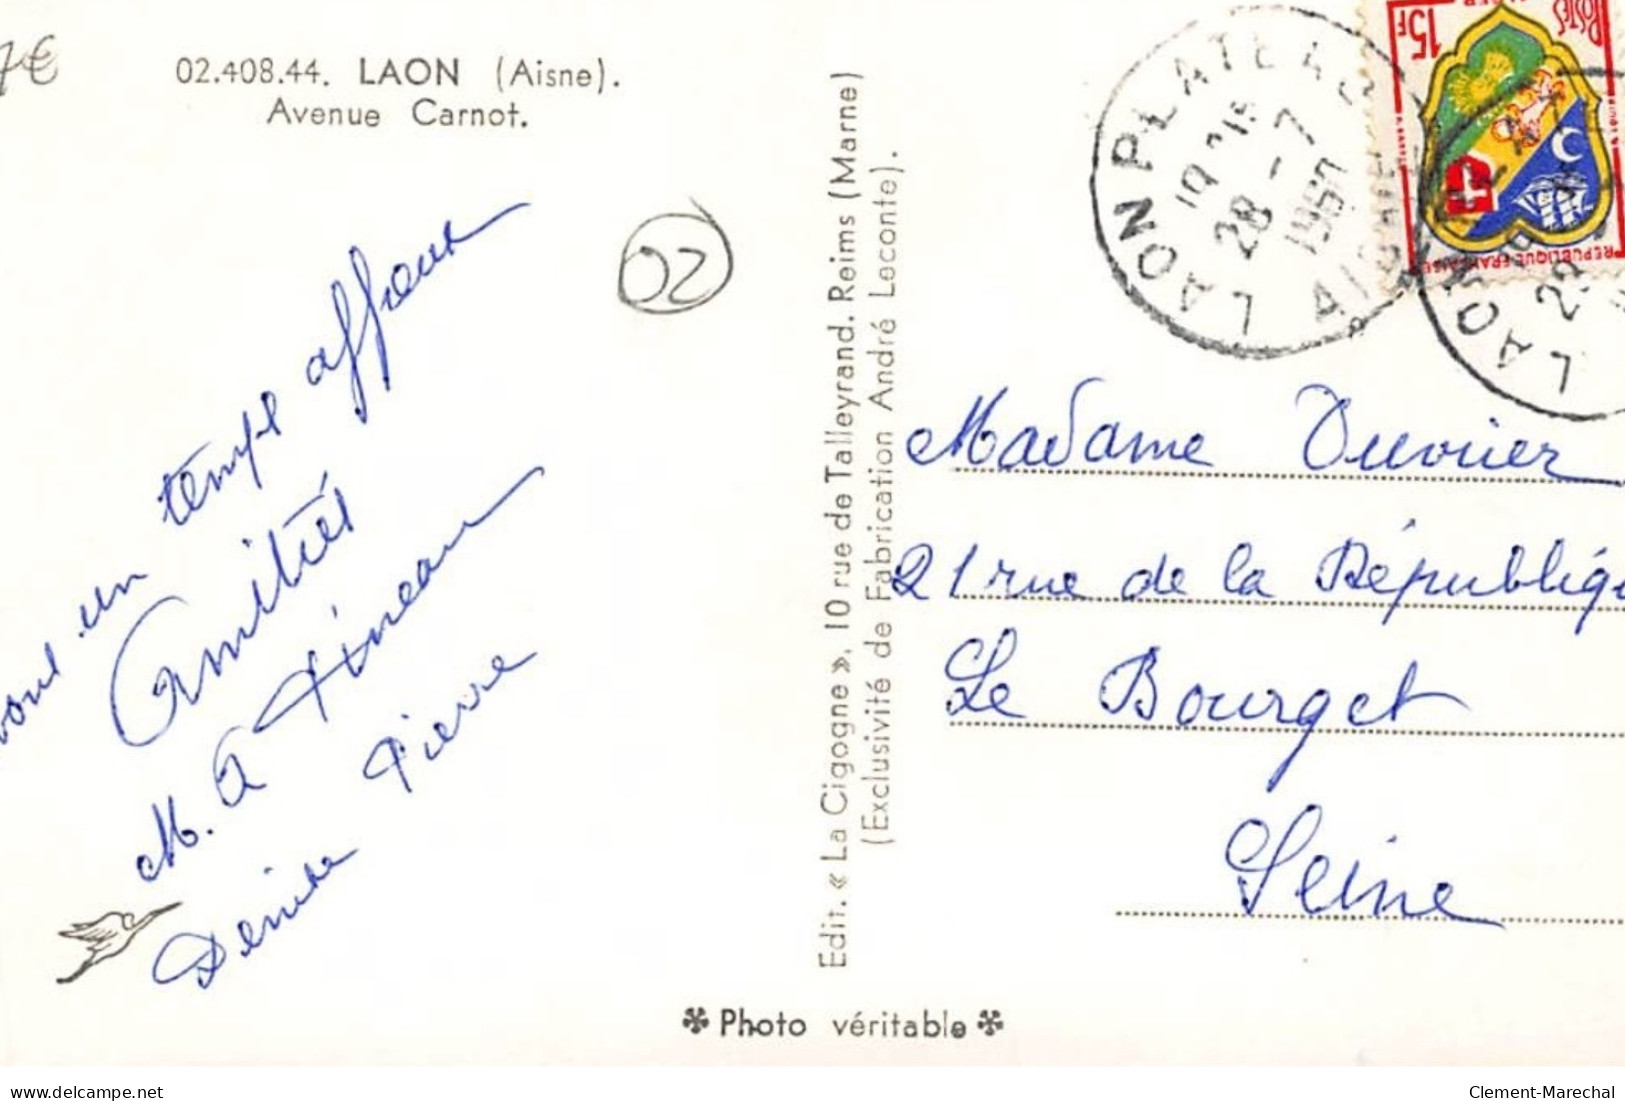 7€
02.408.44. LAON (Aisne).
Avenue Carnot.
02
vous un temps affreux
Amitiés
M. A Pineau
Denise Pierre
Edit. « La Cigogne », 10 rue de Talleyrand. Reims (Marne)
(Exclusivité de Fabrication André Leconte).
LAON PLATEAU
28 - 7
AISNE
15F
POSTES
REPUBLIQUE FRANÇAISE
LAON
Madame Ouvrier
21 rue de la Républiq
Le Bourget
Seine
Photo véritable
delcampe.net
Clement-Marechal